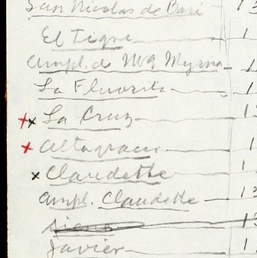 San Nicolas de Bari
El Tigre
Ampl. de Mª Myrna
La Fluorita
La Cruz
Altagracia
Claudette
Ampl. Claudette
Javier